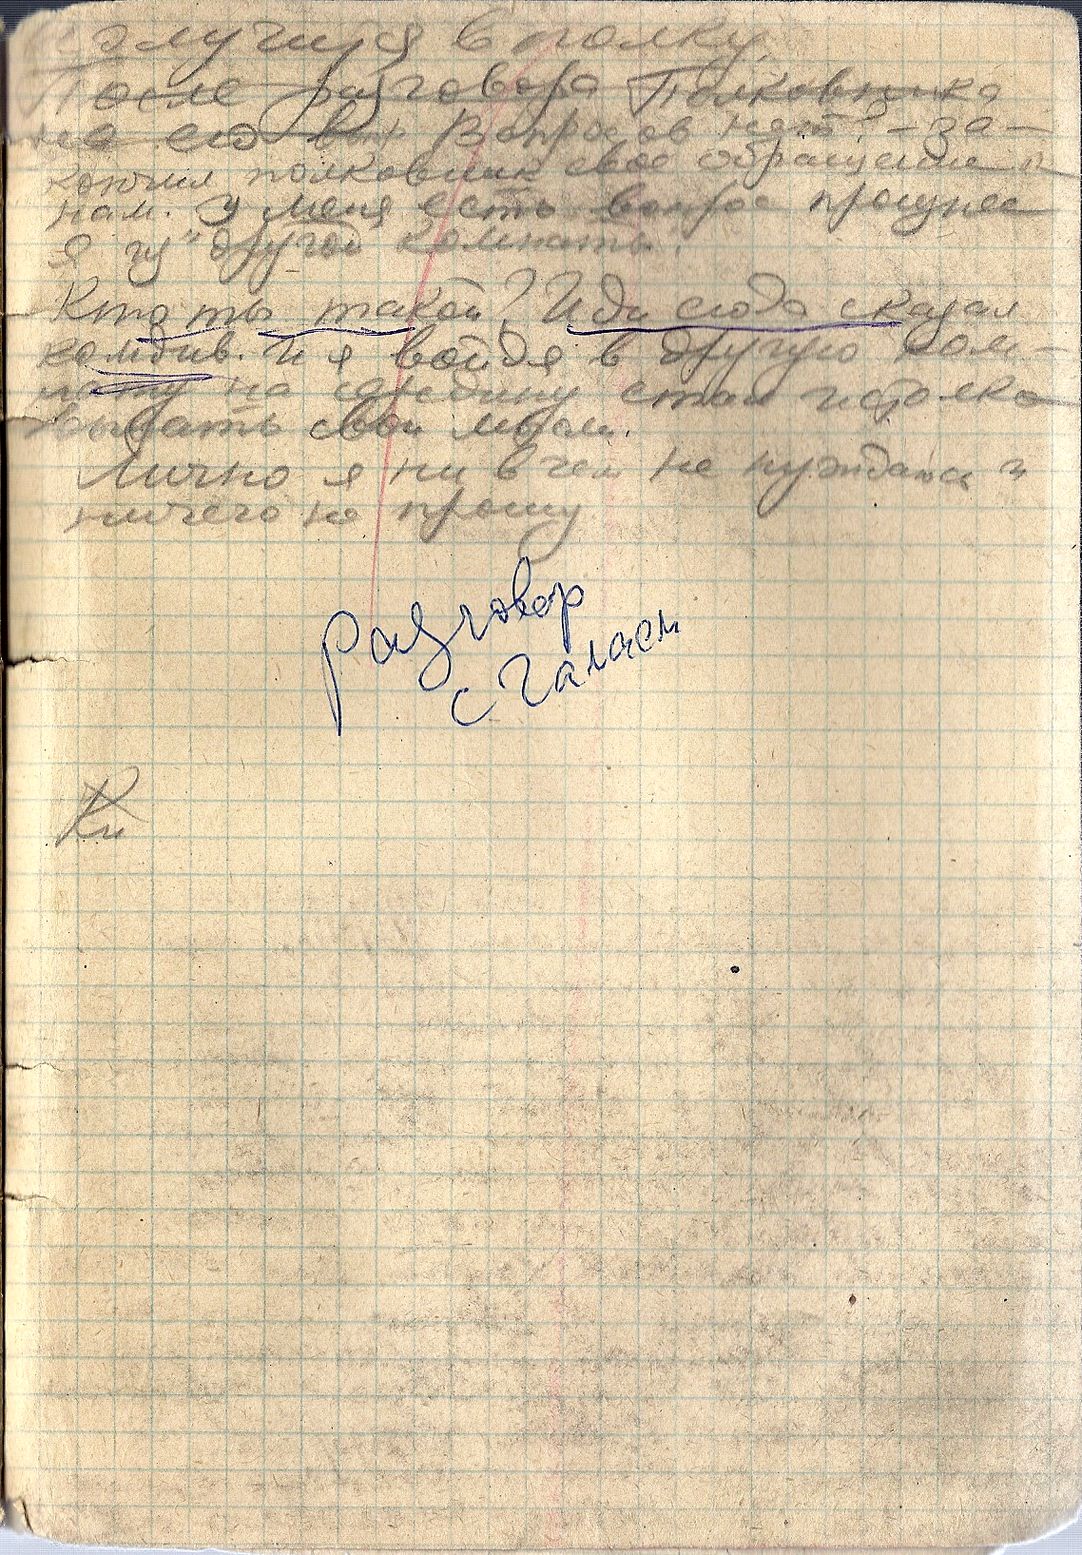 получился в полку.
После разговора Полковника
на его вы Вопросов нет? - за-
кончил полковник свое обращение к
нам. У меня есть вопрос
я из другой комнаты.
Кто ты такой? Иди сюда сказал
комдив. И я войдя в другую ком-
нату на середину стал
свои мысли.
Лично я ни в чем не нуждаюсь и
ничего не прошу
Разговор
с Галаем
Ки